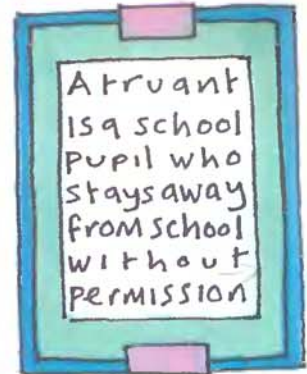 A truant
is a school
pupil who
stays away
from school
without
permission